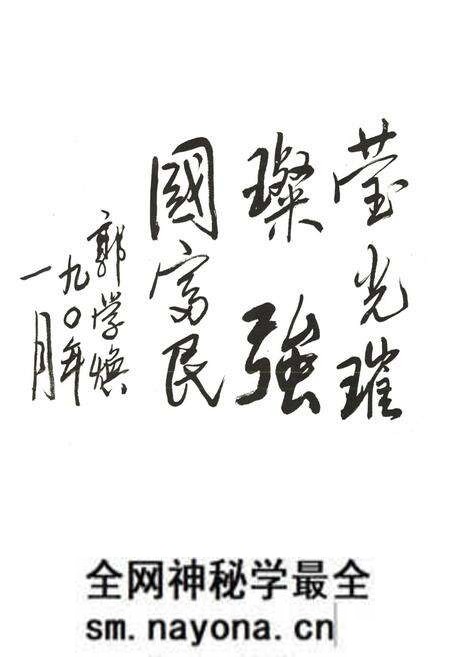 莹光璀
璨 強
國富民
郭学焕
九〇年
一月
全网神秘学最全
sm.nayona.cn